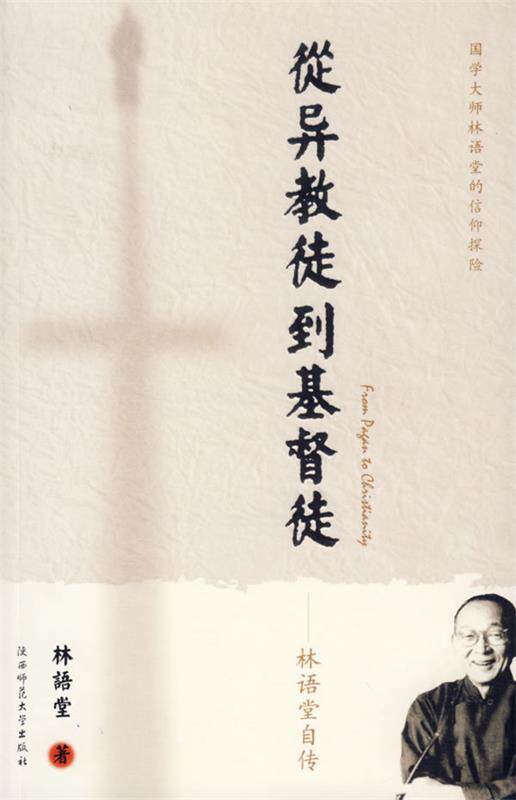 国学大师林语堂的信仰探险
從异教徒到基督徒
From Pagan to Christianity
——林语堂自传
林語堂 著
陕西师范大学出版社